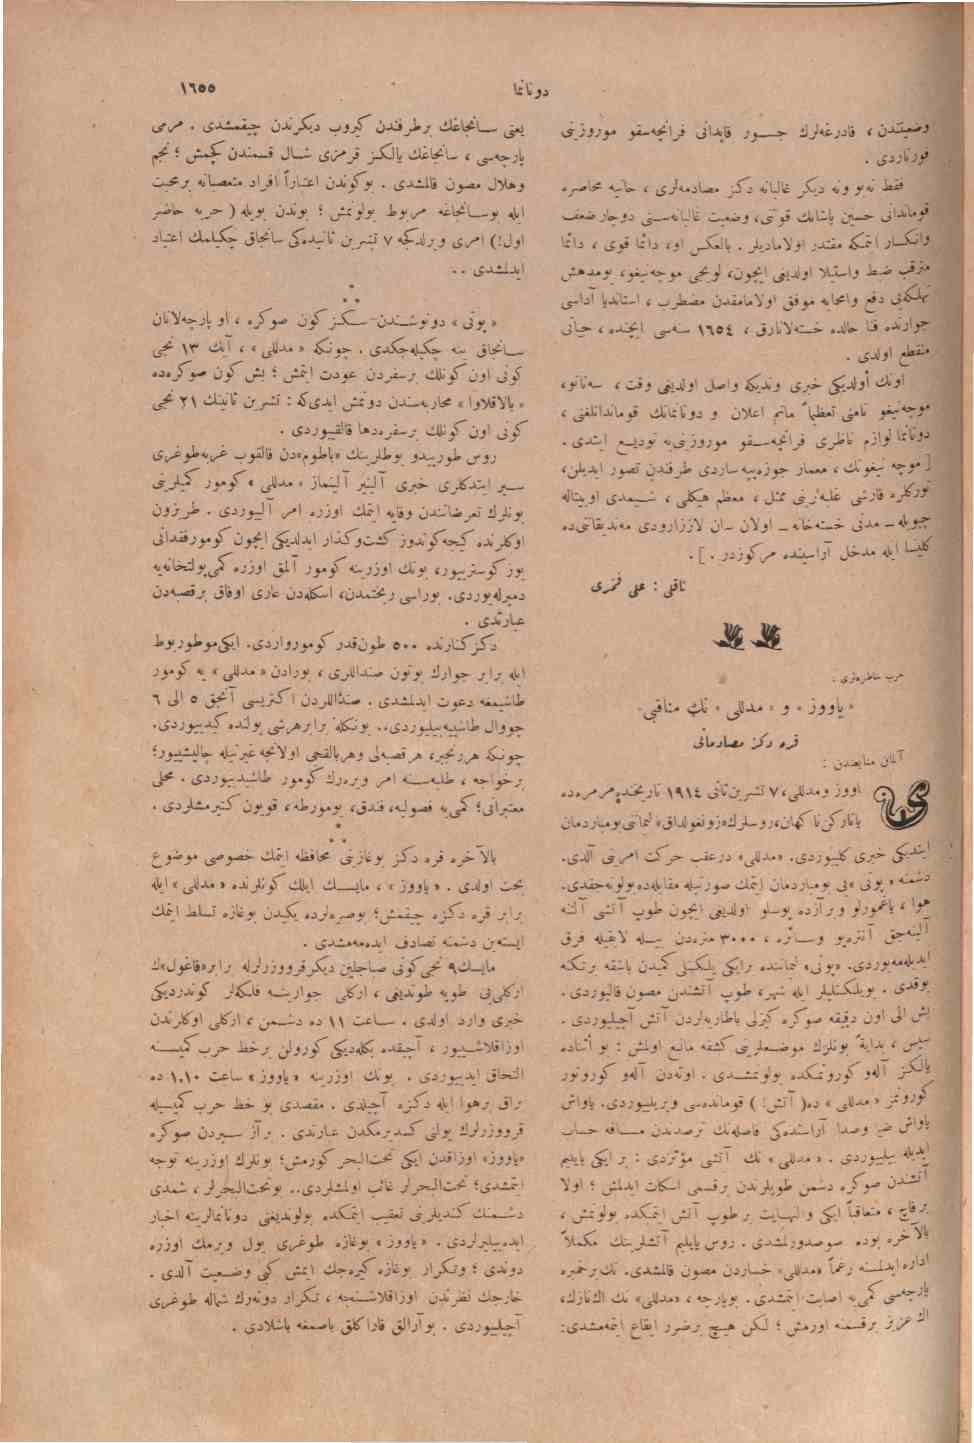 دونانما
١٦٥٥
وضعیتندن ، قادرغه‌لرك جسور قاپدانی فرانچه‌سقو موروزینی
قورتاردی .
فقط نه‌بو ونه دیكر غالبانه دكز مصادمه‌لری ، حانیه محاصره
قومباندانی حسین پاشانك قوتنی، وضعیت غالبانه‌سنی دوچار ضعف
وانكسار ایتمكه مقتدر اولامادیلر . بالعكس او، دائما قوی ، دائما
مترقب ضبط واستیلا اولدیغی ایچون، لونجی موچه‌نیغو، بومدهش
تهلكه‌یی دفع وامحایه موفق اولامامقدن مضطرب ، استاندیا آداسی
جوارنده فنا حالده خسته‌لانارق ، ١٦٥٤ سنه‌سی ایچنده ، حیاتی
منقطع اولدی .
اونك أولدیكی خبری وندیكه واصل اولدیغی وقت ، سه‌ناتو،
موچه‌نیغو نامنی تعظیماً ماتم اعلان و دونانمانك قوماندانلغنی ،
دونانما لوازم ناظری فرانچه‌سقو موروزینی‌یه تودیع ایتدی .
[ موچه نیغونك ، معمار جوزه‌پپه ساردی طرفندن تصور ایدیلن،
توركلره قارشی غلبه‌لرینی ممثل ، معظم هیكلی ، شیمدی اوسپیتاله
چیویله ـ مدنی خسته‌خانه ـ اولان سان لاززارودی مه‌ندیقانتی‌ده
كلیسا ایله مدخل آراسینده مركوزدر . ] .
ناقلی : علی فخری
حرب خاطره‌لری :
« یاووز » و « مدللی » نك مناقبی
قره دكز مصادماتی
آلمان منابعندن :
یاووز ومدللی، ٧ تشرین‌ثانی ١٩١٤ تاریخنده مرمره‌ده
یاتاركن‌نا كهان، روسلرك «زونغولداق» لیماننی بومباردمان
ایتدیكی خبری كلیوردی. «مدللی» درعقب حركت امرینی آلدی.
دشمنه « پوتی »یی بومباردمان ایتمك صورتیله مقابله‌ده بولونه‌جقدی.
هوا ، یاغمورلو وبرآزده پوسلو اولدیغی ایچون طوپ آتشی آلتنه
آلینه‌جق آنتره‌پو وسائره ، ٣٠٠٠ متره‌دن بیله لایقیله فرق
ایدیله‌مه‌یوردی. «پوتی» لیماننده برایكی یلكنلی كمیدن باشقه برتكنه
یوقدی . بویلكنلیلر ایله شهر، طوپ آتشندن مصون قالیوردی .
بش الی اون دقیقه صوكره كیزلی باطاریه‌لردن آتش آچیلیوردی .
سیس ، بدایةً بونلرك موضعلرینی كشفه مانع اولمش : بو أثناده
یالكز آلەو كورونمكده بولونمشدی . اوته‌دن آلەو كورونور
كورونمز « مدللی » ده ( آتش! ) قومانده‌سی ویریلیوردی. یاواش
یاواش ضیا وصدا آراسنده‌كی فاصله‌نك ترصدیدن مسافه حساب
ایدیله بیلیوردی . « مدللی » نك آتشی مؤثردی : برایكی یایلیم
آتشندن صوكره دشمن طوپلرندن برقسمی اسكات ایدلمش ؛ اولا
برقاچ ، متعاقباً ایكی والنهایت برطوپ آتش ایتمكده بولونمش ،
بالآخره بوده صوصدورلمشدی . روس یایلیم آتشلرینك مكملاً
اداره ایدلمسنه رغماً «مدللی» خساردن مصون قالمشدی. تك برخمپره
پارچه‌سی كمی‌یه اصابت ایتمشدی. بوپارچه ، «مدللی» نك اك‌نازك،
اك عزیز برقسمنه اورمش ؛ لكن هیچ برضرر ایقاع ایتمه‌مشدی:
یعنی سانجاغك برطرفندن كیروب دیكرندن چیقمشدی . مرمی
پارچه‌سی ، سانجاغك یالكز قرمزی شال قسمندن كچمش ؛ نجم
وهلال مصون قالمشدی . بوكوندن اعتباراً افراد متعصبانه برمحبت
ایله بوسانجاغه مربوط بولونمش ؛ بوندن بویله ( حربه حاضر
اول!) امری ویرلدكجه ٧ تشرین ثانیده‌كی سانجاق چكیلمك اعتیاد
ایدلمشدی . .
*
* *
« پوتی » دونوشندن سكز كون صوكره ، او پارچه‌لانان
سانجاق ینه چكیله‌جكدی . چونكه « مدللی » ، آیك ١٣ نجی
كونی اون كونلك برسفردن عودت ایتمش ؛ بش كون صوكره‌ده
« بالاقلاوا » محاربه‌سندن دونمش ایدی‌كه : تشرین ثانینك ٢١ نجی
كونی اون كونلك برسفره‌دها قالقییوردی .
روس طورپیدو بوطلرینك «باطوم»دن قالقوب غربه‌طوغری
سیر ایتدكلری خبری آلینیر آلینماز « مدللی » كومور كمیلرینی
بونلرك تعرضاتندن وقایه ایتمك اوزره امر آلییوردی . طربزون
اوكلرنده كیجه‌كوندوز كشت‌وكذار ایدلدیكی ایچون كومورفقدانی
یوز كوستریور، بونك اوزرینه كومور آلمق اوزره كمی‌پولتخانه‌یه
دمیرله‌یوردی. بوراسی ریختمدن، اسكله‌دن عاری اوفاق برقصبه‌دن
عبارتدی .
دكزكنارنده ٥٠٠ طون‌قدر كوموروارد‌ی. ایكی‌موطوربوط
ایله برابر جوارك بوتون صنداللری ، بورادن «مدللی» یه كومور
طاشیمغه دعوت ایدلمشدی . صنداللردن اكثریسی آنجق ٥ الی ٦
چووال طاشییه‌بیلیوردی.. بونكله برابرهرشی یولنده كیدییوردی.
چونكه هررنجبر، هرقصبه‌لی وهربالقجی اولانجه غیرتیله چالیشییور؛
برخواجه ، طلبه‌سنه امر ویره‌رك كومور طاشیدییوردی . محلی
معتبرانی؛ كمی‌یه فصولیه، فندق، یومورطه، قویون كتیرمشلردی.
*
* *
بالآخره قره دكز بوغازینی محافظه ایتمك خصوصی موضوع
بحث اولدی . «یاووز» ، مایسك ایلك كونلرنده «مدللی» ایله
برابر قره دكزه چیقمش؛ بوصیره‌لرده یكیدن بوغازه تسلط ایتمك
ایسته‌ین دشمنه تصادف ایده‌مه‌مشدی .
مایسك٩ نجی‌كونی صباحلین دیكرقرووزرلرله برابر«قاغول»ك
ازكلی‌یی طوپه طوتدیغی ، ازكلی جوارینه فلیكه‌لر كوندردیكی
خبری وارد اولدی . ساعت ١١ ده دشمن ، ازكلی اوكلرندن
اوزاقلاشییور ، آچیقده بكله‌دیكی كورولن برخط حرب كمیسنه
التحاق ایدییوردی . بونك اوزرینه «یاووز» ساعت ١،١٠ ده
براق برهوا ایله دكزه آچیلدی . مقصدی بو خط حرب كمیسیله
قرووزرلرك یولنی كسدیرمكدن عبارتدی . برآز سیردن صوكره
«یاووز» اوزاقدن ایكی تحت‌البحر كورمش؛ بونلرك اوزرینه توجه
ایتمشدی؛ تحت‌البحرلر غائب اولمشلردی.. بوتحت‌البحرلر ، شمدی
دشمنك كندیلرینی تعقیب ایتمكده بولوندیغنی دونانمالرینه اخبار
ایده‌بیلیرلردی . «یاووز» بوغازه طوغری یول ویرمك اوزره
دوندی ؛ وتكرار بوغازه كیره‌جك ایمش كبی وضعیت آلدی .
خارجك نظرندن اوزاقلاشنجه ، تكرار دونه‌رك شماله طوغری
آچیلیوردی . بوآرالق قاراكلق باصمغه باشلادی .